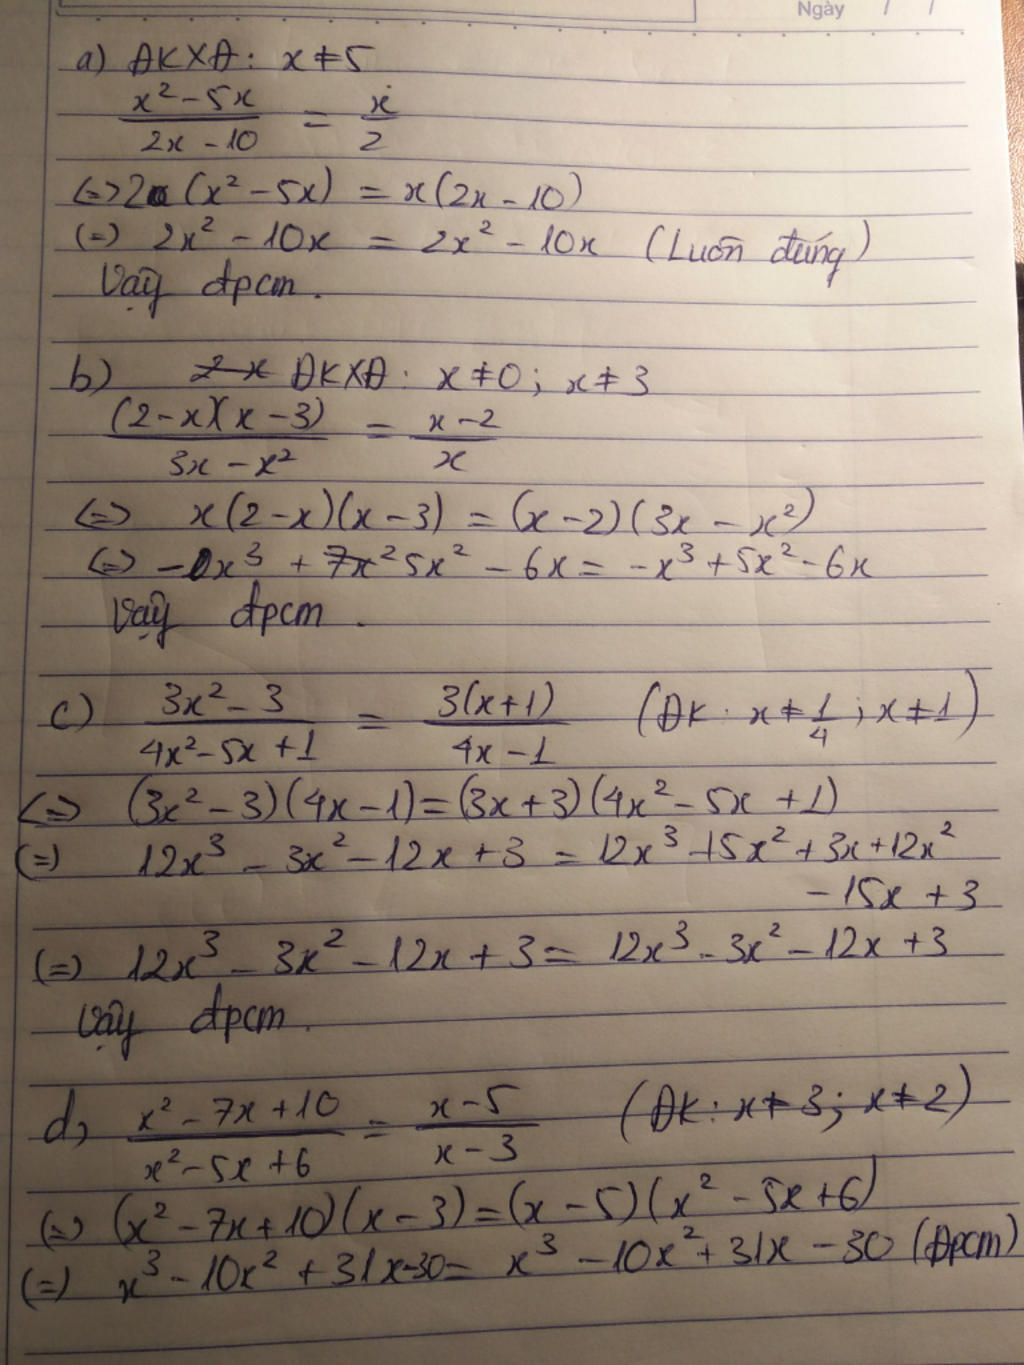 Ngày / /
a) ĐKXĐ: x ≠ 5
(x² - 5x)/(2x - 10) = x/2
(=) 2(x² - 5x) = x(2x - 10)
(=) 2x² - 10x = 2x² - 10x (Luôn đúng)
Vậy đpcm.
b) 2-x ĐKXĐ: x ≠ 0; x ≠ 3
((2 - x)(x - 3))/(3x - x²) = (x - 2)/x
(=) x(2 - x)(x - 3) = (x - 2)(3x - x²)
(=) - x³ + 7x² 5x² - 6x = -x³ + 5x² - 6x
Vậy đpcm.
c) (3x² - 3)/(4x² - 5x + 1) = (3(x + 1))/(4x - 1) (ĐK: x ≠ 1/4; x ≠ 1)
(=) (3x² - 3)(4x - 1) = (3x + 3)(4x² - 5x + 1)
(=) 12x³ - 3x² - 12x + 3 = 12x³ - 15x² + 3x + 12x²
- 15x + 3
(=) 12x³ - 3x² - 12x + 3 = 12x³ - 3x² - 12x + 3
Vậy đpcm.
d, (x² - 7x + 10)/(x² - 5x + 6) = (x - 5)/(x - 3) (ĐK: x ≠ 3; x ≠ 2)
(=) (x² - 7x + 10)(x - 3) = (x - 5)(x² - 5x + 6)
(=) x³ - 10x² + 31x - 30 = x³ - 10x² + 31x - 30 (Đpcm)